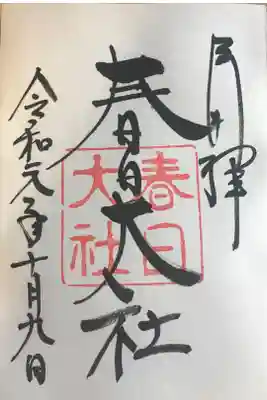 奉拝
春日大社
春日大社
令和元年十月九日